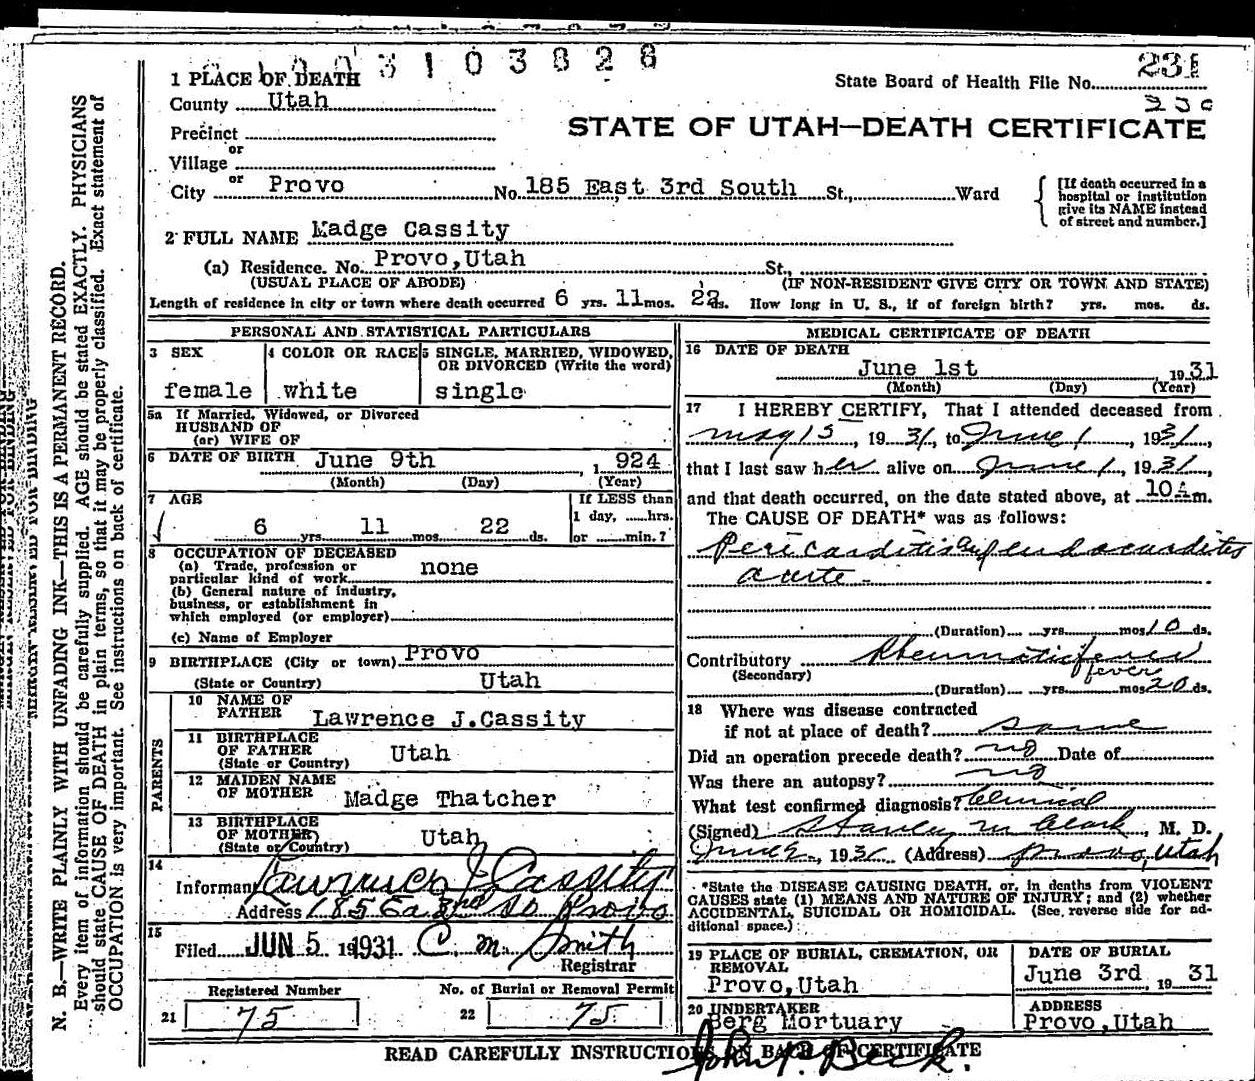 3103828
1 PLACE OF DEATH
State Board of Health File No. 231
230
County Utah
STATE OF UTAH—DEATH CERTIFICATE
Precinct
or
Village
or
City Provo No. 185 East 3rd South St., Ward
[If death occurred in a hospital or institution give its NAME instead of street and number.]
2 FULL NAME Madge Cassity
(a) Residence. No. Provo, Utah St.,
(USUAL PLACE OF ABODE) (IF NON-RESIDENT GIVE CITY OR TOWN AND STATE)
Length of residence in city or town where death occurred 6 yrs. 11 mos. 22 ds. How long in U. S., if of foreign birth? yrs. mos. ds.
PERSONAL AND STATISTICAL PARTICULARS
3 SEX
female
4 COLOR OR RACE
white
5 SINGLE, MARRIED, WIDOWED, OR DIVORCED (Write the word)
single
5a If Married, Widowed, or Divorced
HUSBAND OF
(or) WIFE OF
6 DATE OF BIRTH June 9th, 1 924
(Month) (Day) (Year)
7 AGE
6 yrs. 11 mos. 22 ds.
If LESS than
1 day, ......hrs.
or ......min.?
8 OCCUPATION OF DECEASED
(a) Trade, profession or
particular kind of work none
(b) General nature of industry,
business, or establishment in
which employed (or employer)
(c) Name of Employer
9 BIRTHPLACE (City or town) Provo
(State or Country) Utah
PARENTS
10 NAME OF
FATHER Lawrence J.Cassity
11 BIRTHPLACE
OF FATHER Utah
(State or Country)
12 MAIDEN NAME
OF MOTHER Madge Thatcher
13 BIRTHPLACE
OF MOTHER Utah
(State or Country)
14
Informant Lawrence J Cassity
Address 185 Ea 3rd So Provo
15
Filed JUN 5 1931 C. M. Smith
Registrar
Registered Number No. of Burial or Removal Permit
21 75 22 75
MEDICAL CERTIFICATE OF DEATH
16 DATE OF DEATH
June 1st 1931
(Month) (Day) (Year)
17 I HEREBY CERTIFY, That I attended deceased from
May 15, 1931, to June 1, 1931,
that I last saw her alive on June 1, 1931,
and that death occurred, on the date stated above, at 10 A m.
The CAUSE OF DEATH* was as follows:
Pericarditis and endocarditis
acute
(Duration) yrs. mos. 10 ds.
Contributory Rheumatic fever
(Secondary) fever
(Duration) yrs. mos. 20 ds.
18 Where was disease contracted
if not at place of death? same
Did an operation precede death? no Date of
Was there an autopsy? no
What test confirmed diagnosis? Clinical
(Signed) Stanley M Clark, M. D.
June 2, 1931 (Address) Provo, Utah
*State the DISEASE CAUSING DEATH, or, in deaths from VIOLENT
CAUSES state (1) MEANS AND NATURE OF INJURY; and (2) whether
ACCIDENTAL, SUICIDAL OR HOMICIDAL. (See reverse side for ad-
ditional space.)
19 PLACE OF BURIAL, CREMATION, OR
REMOVAL
Provo, Utah
DATE OF BURIAL
June 3rd, 19 31
20 UNDERTAKER
Berg Mortuary
John P. Beck.
ADDRESS
Provo, Utah
READ CAREFULLY INSTRUCTIONS ON BACK OF CERTIFICATE
N. B.—WRITE PLAINLY WITH UNFADING INK—THIS IS A PERMANENT RECORD.
Every item of information should be carefully supplied. AGE should be stated EXACTLY. PHYSICIANS
should state CAUSE OF DEATH in plain terms, so that it may be properly classified. Exact statement of
OCCUPATION is very important. See instructions on back of certificate.